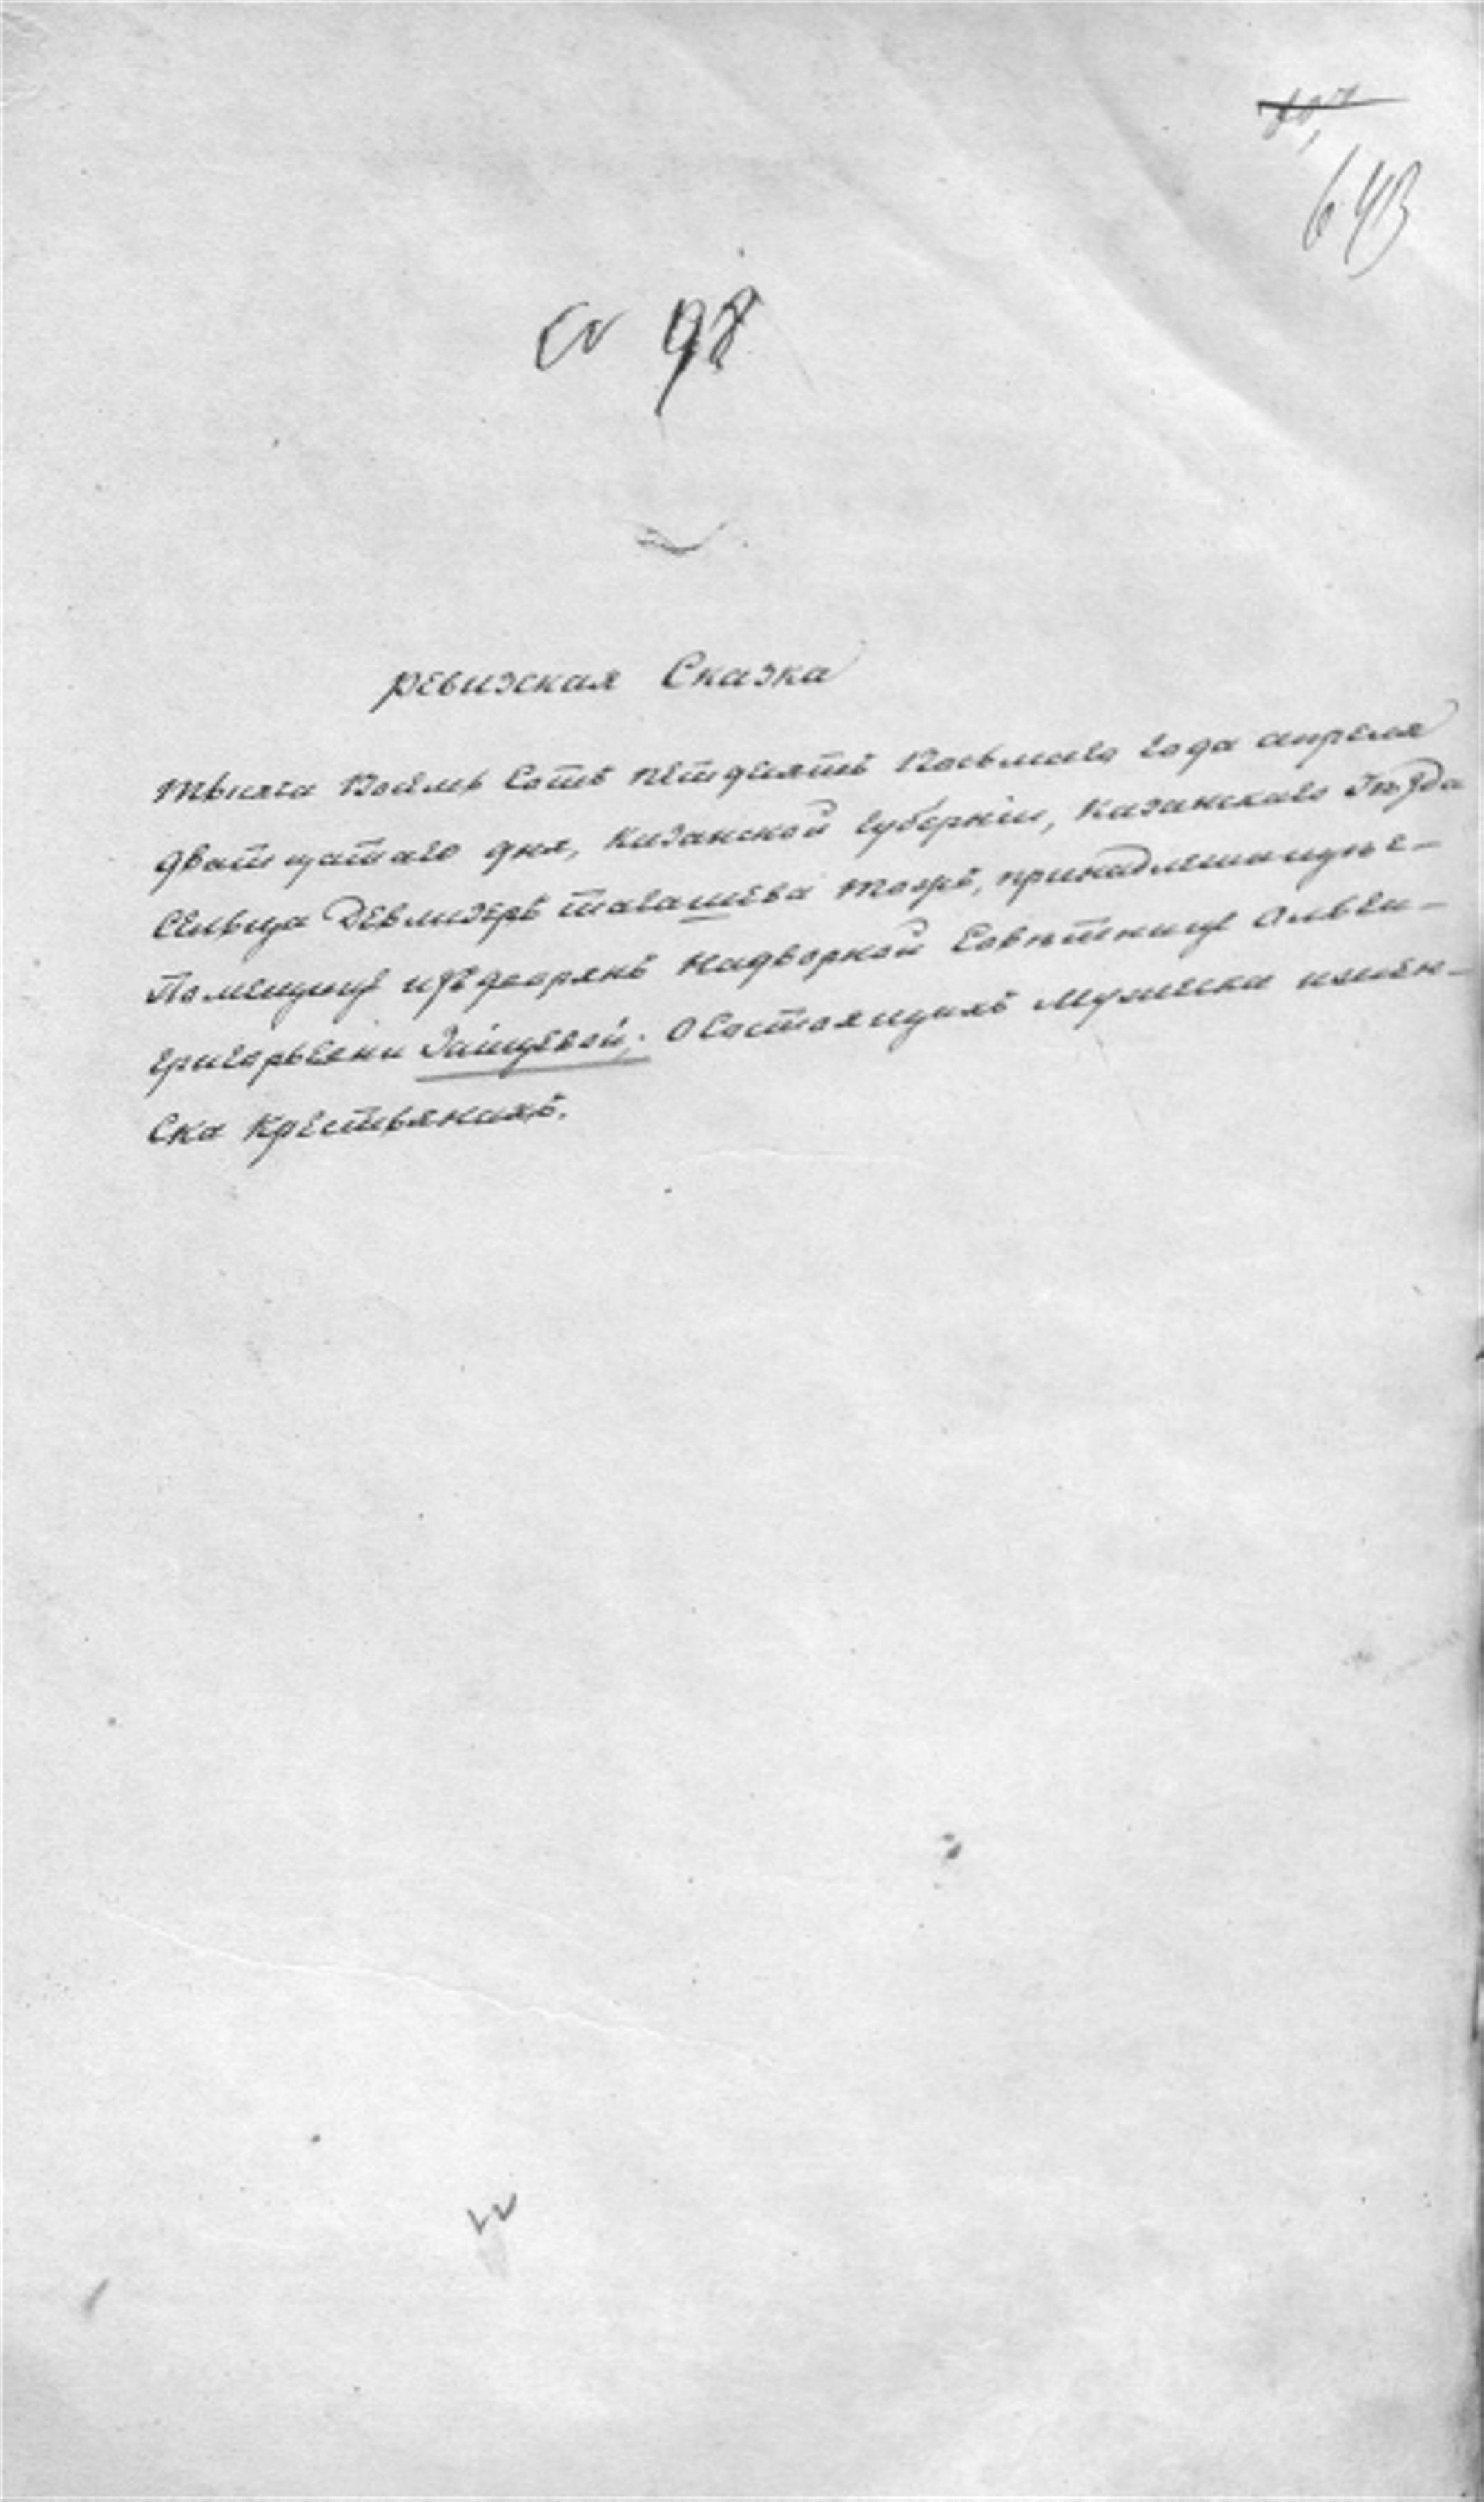 643
№ 98
ревизская Сказка
тысяча Восемь Сотъ петдесятъ Восьмаго года апреля
дватцатаго дня, Казанской губерніи, Казанскаго уѣзда
Сельца Девлизерь тожъ, принадлежащуе-
Помещице изъ дворянъ надворной Совѣтнице
григорьевни Зайцевой; О Состоящихъ мужеска и женъ-
Ска Крестьянахъ.